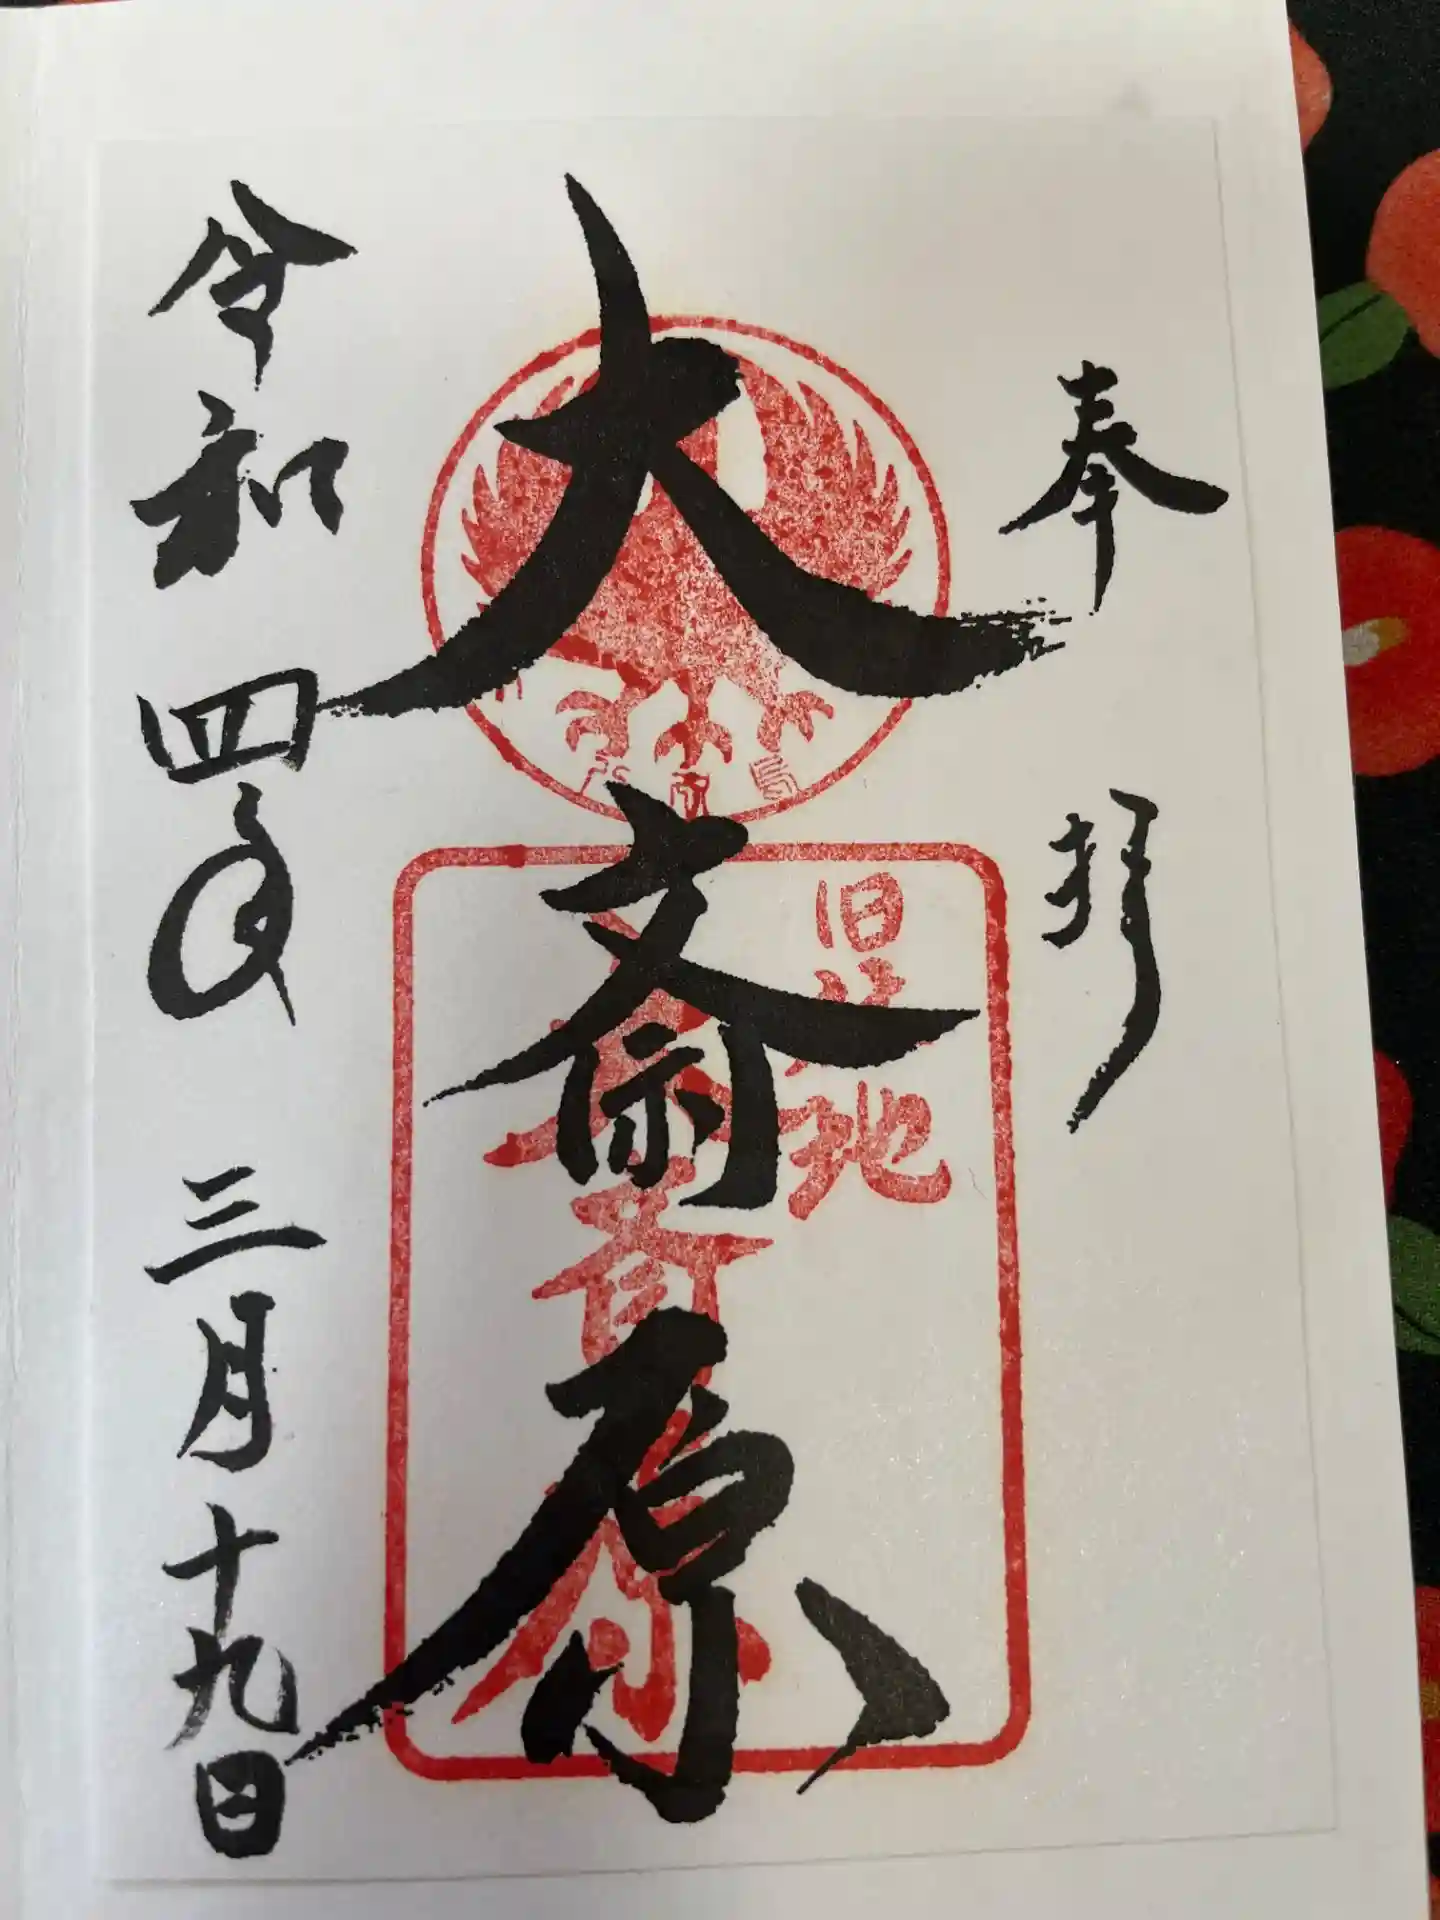 奉拝
大斎原
旧社地
大斎原
令和四年三月十九日